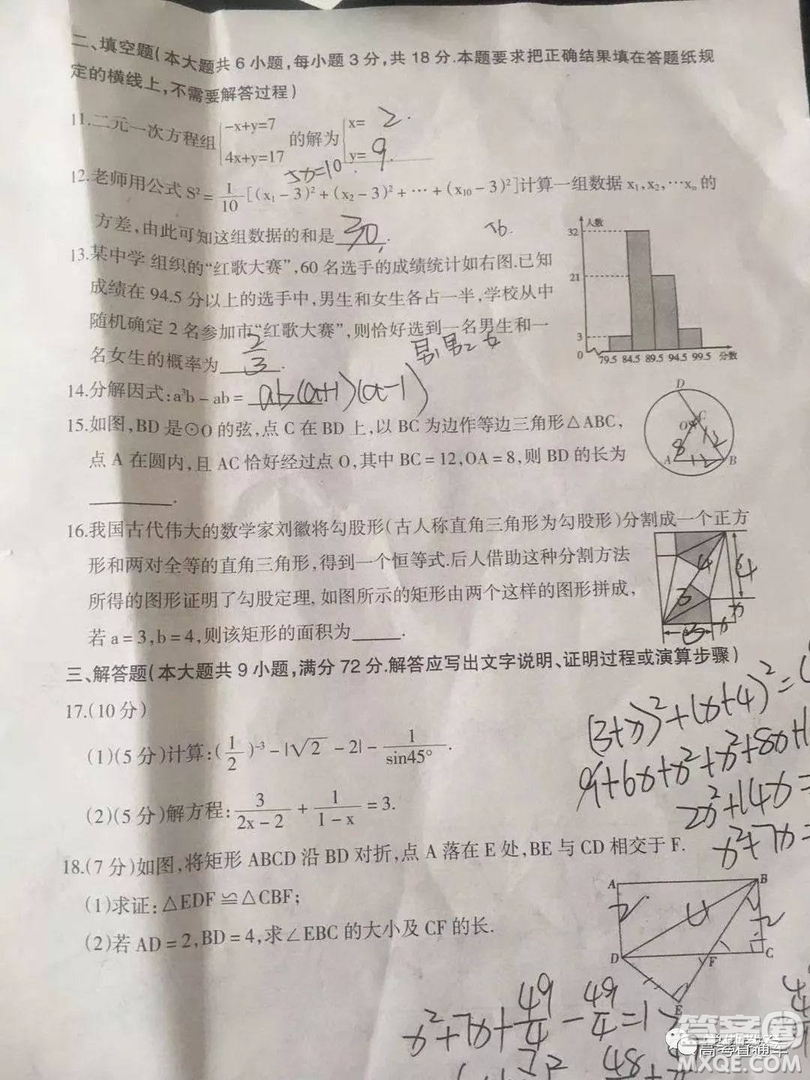 二、填空题(本大题共6小题,每小题3分,共18分.本题要求把正确结果填在答题纸规
定的横线上,不需要解答过程)
11.二元一次方程组{-x+y=7 4x+y=17 的解为{x= 2. y= 9.
5x=10
12.老师用公式S²=1/10[(x₁-3)²+(x₂-3)²+⋯+(x₁₀-3)²]计算一组数据x₁,x₂,⋯xₙ的
方差,由此可知这组数据的和是 30.
13.某中学 组织的“红歌大赛”,60名选手的成绩统计如右图.已知
成绩在94.5分以上的选手中,男生和女生各占一半,学校从中
随机确定2名参加市“红歌大赛”,则恰好选到一名男生和一
名女生的概率为 2/3.
男₁男₂女
人数
32
21
3
0 79.5 84.5 89.5 94.5 99.5 分数
14.分解因式:a³b-ab= ab(a+1)(a-1)
15.如图,BD是⊙O的弦,点C在BD上,以BC为边作等边三角形△ABC,
点A在圆内,且AC恰好经过点O,其中BC=12,OA=8,则BD的长为
______.
D
O C
8 12
A 12 B
16.我国古代伟大的数学家刘徽将勾股形(古人称直角三角形为勾股形)分割成一个正方
形和两对全等的直角三角形,得到一个恒等式.后人借助这种分割方法
所得的图形证明了勾股定理,如图所示的矩形由两个这样的图形拼成,
若a=3,b=4,则该矩形的面积为_____.
4 4
3 x
3 x
三、解答题(本大题共9小题,满分72分.解答应写出文字说明、证明过程或演算步骤)
17.(10分)
(3+x)²+(x+4)²=(
(1)(5分)计算:(1/2)⁻³-|√2-2|-1/sin45°.
9+6x+x²+x²+8x+1
2x²+14x=
(2)(5分)解方程:3/(2x-2)+1/(1-x)=3.
x²+7x=
18.(7分)如图,将矩形ABCD沿BD对折,点A落在E处,BE与CD相交于F.
(1)求证:△EDF≌△CBF;
(2)若AD=2,BD=4,求∠EBC的大小及CF的长.
A B
2 4 2
D F C
E
x²+7x+49/4-49/4=1
答案圈
MXQE.COM
高考直通车